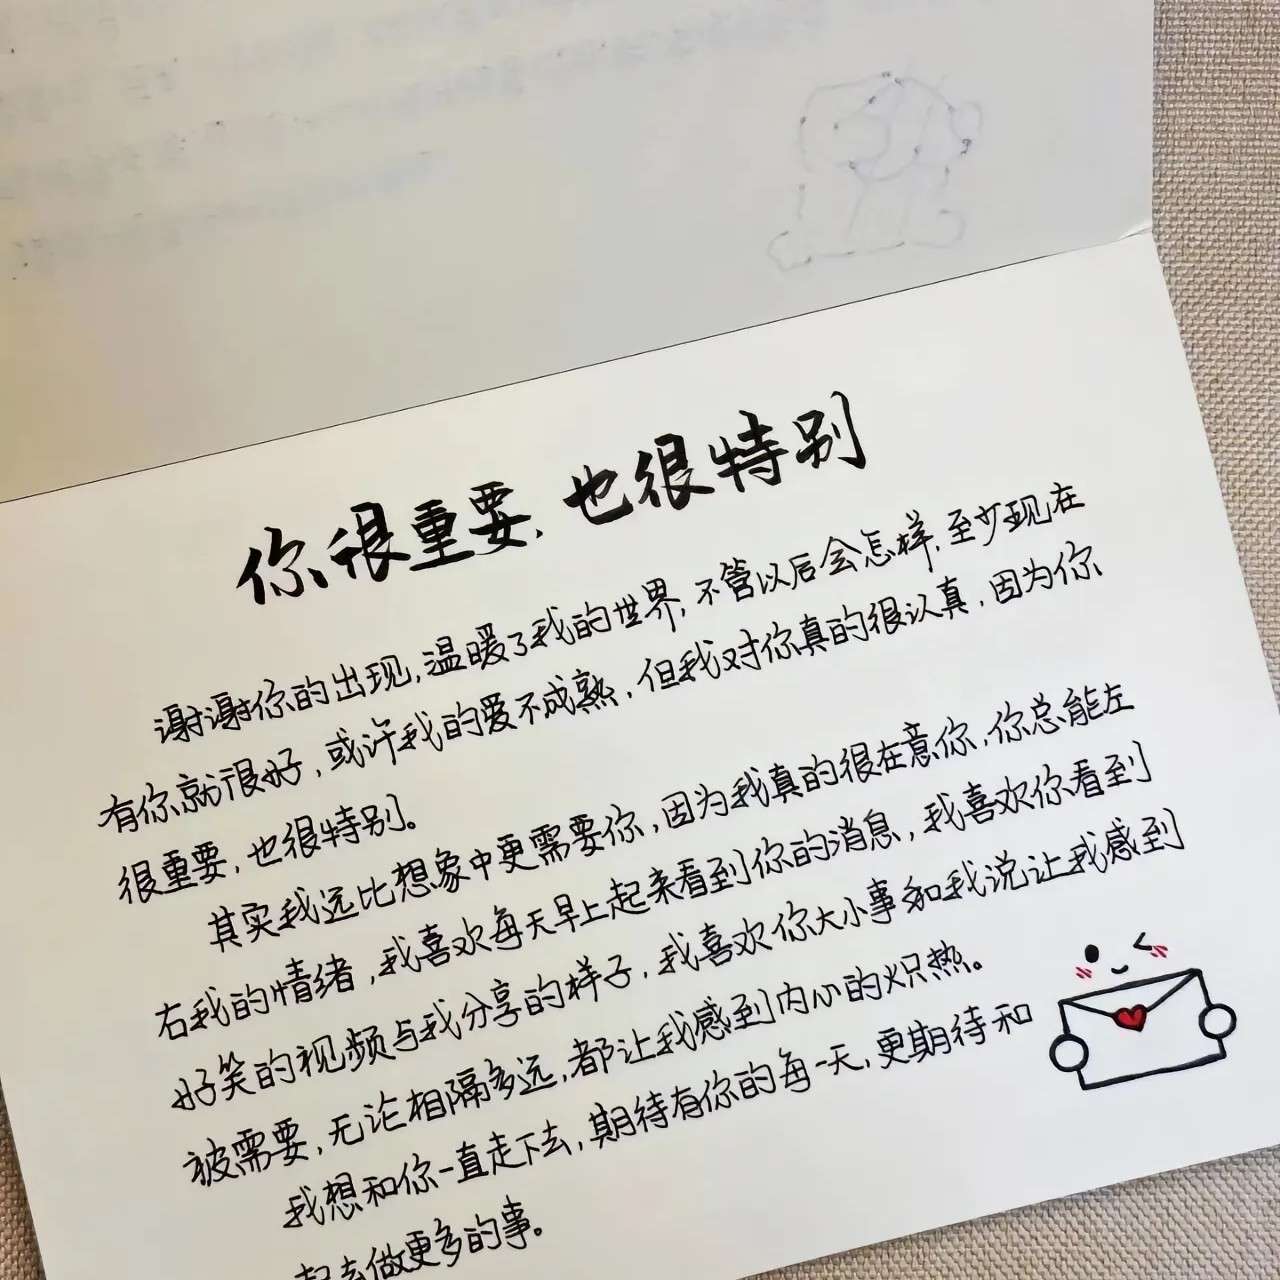 你很重要，也很特别
谢谢你的出现，温暖了我的世界，不管以后会怎样，至少现在
有你就很好，或许我的爱不成熟，但我对你真的很认真，因为你
很重要，也很特别。
其实我远比想象中更需要你，因为我真的很在意你，你总能左
右我的情绪，我喜欢每天早上起来看到你的消息，我喜欢你看到
好笑的视频与我分享的样子，我喜欢你大小事都和我说让我感到
被需要，无论相隔多远，都让我感到内心的炽热。
我想和你一直走下去，期待有你的每一天，更期待和
起去做更多的事。